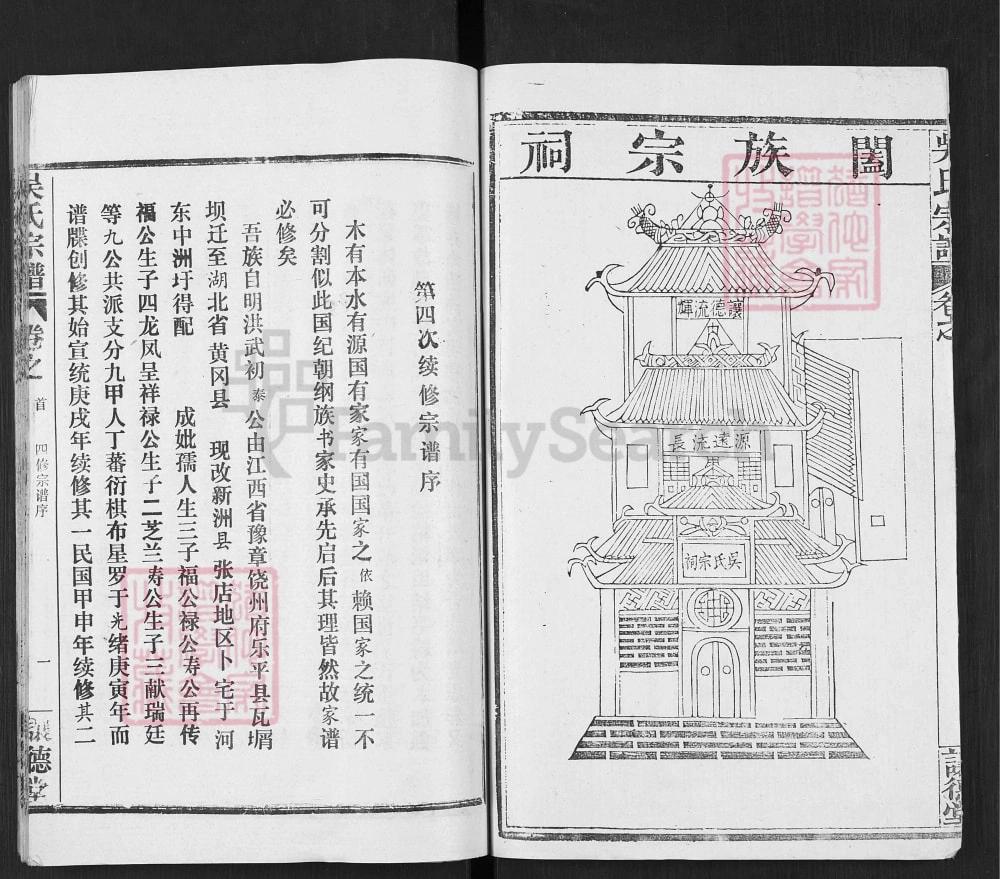 闔族宗祠
讓德流輝
源遠流長
吳氏宗祠
第四次续修宗谱序
木有本水有源国有家家有国国家之依赖国家之统一不
可分割似此国纪朝纲族书家史承先启后其理皆然故家谱
必修矣
吾族自明洪武初泰公由江西省豫章饶州府乐平县瓦塌
坝迁至湖北省黄冈县 现改新洲县 张店地区卜宅于河
东中洲圩得配 成妣孺人生三子福公禄公寿公再传
福公生子四龙凤呈祥禄公生子二芝兰寿公生子三献瑞廷
等九公共派支分九甲人丁蕃衍棋布星罗于光绪庚寅年而
谱牒创修其始宣统庚戌年续修其一民国甲申年续修其二
吴氏宗谱 卷之 首 四修宗谱序 一 讓德堂
吳氏宗譜 卷之
讓德堂
FamilySearch